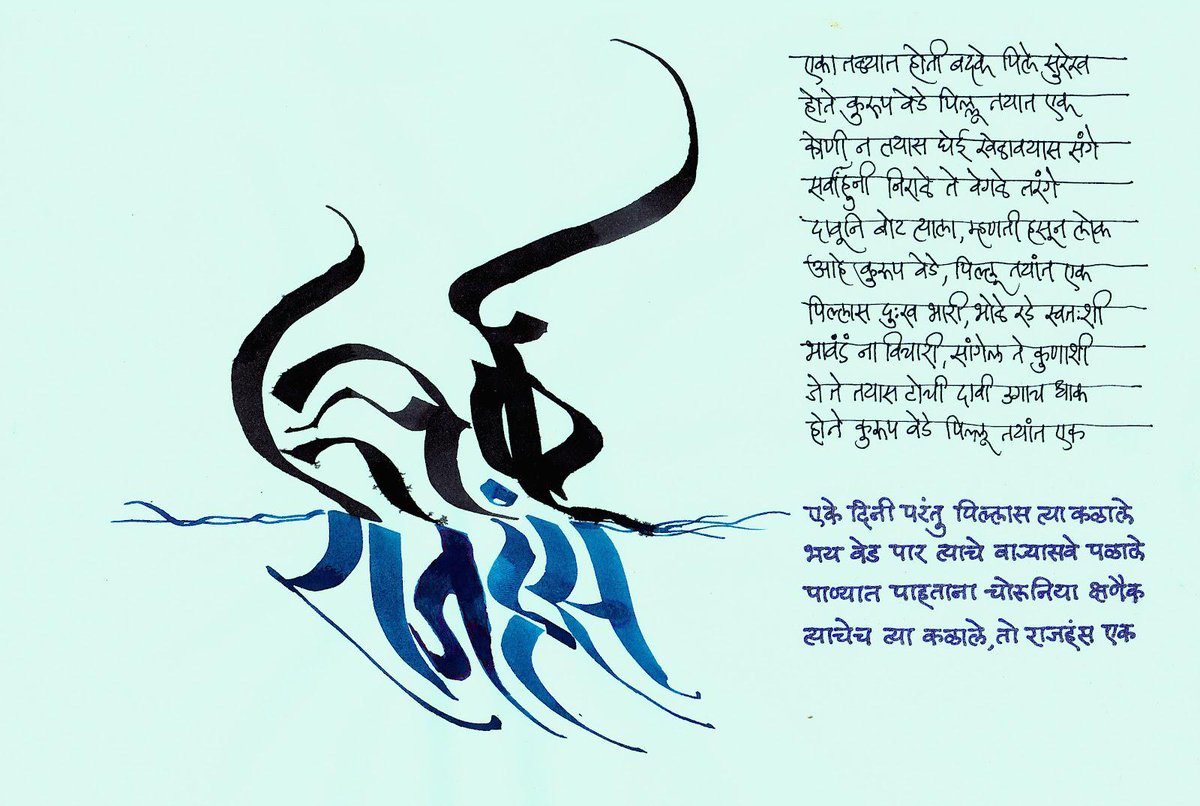 राजहंस
एका तळ्यात होती बदके पिले सुरेख
होते कुरूप वेडे पिल्लू तयात एक
कोणी न तयास घेई खेळावयास संगे
सर्वांहुनी निराळे ते वेगळे तरंगे
दावूनि बोट त्याला, म्हणती हसून लोक
आहे कुरूप वेडे, पिल्लू तयांत एक
पिल्लास दुःख भारी, भोळे रडे स्वतःशी
भावंडं ना विचारी, सांगेल ते कुणाशी
जे ते तयास टोची दावी उगाच धाक
होते कुरूप वेडे पिल्लू तयांत एक
एके दिनी परंतु पिल्लास त्या कळाले
भय वेड पार त्याचे वाऱ्यासवे पळाले
पाण्यात पाहताना चोरुनिया क्षणैक
त्याचेच त्या कळाले, तो राजहंस एक